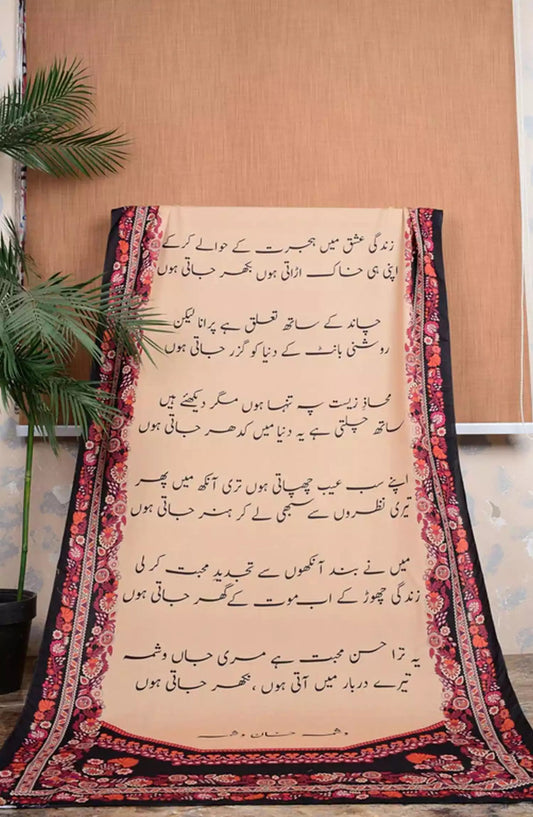 زندگی عشق میں ہجرت کے حوالے کرکے
اپنی ہی خاک اڑاتی ہوں بکھر جاتی ہوں
چاند کے ساتھ تعلق ہے پرانا لیکن
روشنی بانٹ کے دنیا کو گزر جاتی ہوں
محاذِ زیست پہ تنہا ہوں مگر دیکھئے ہیں
ساتھ چلتی ہے یہ دنیا میں کدھر جاتی ہوں
اپنے سب عیب چھپاتی ہوں تری آنکھ میں پھر
تیری نظروں سے سبھی لے کر ہنر جاتی ہوں
میں نے بند آنکھوں سے تجدیدِ محبت کر لی
زندگی چھوڑ کے اب موت کے گھر جاتی ہوں
یہ ترا حسن محبت ہے مری جاں وشمہ
تیرے دربار میں آتی ہوں ، نکھر جاتی ہوں
وشمہ خان وشمہ